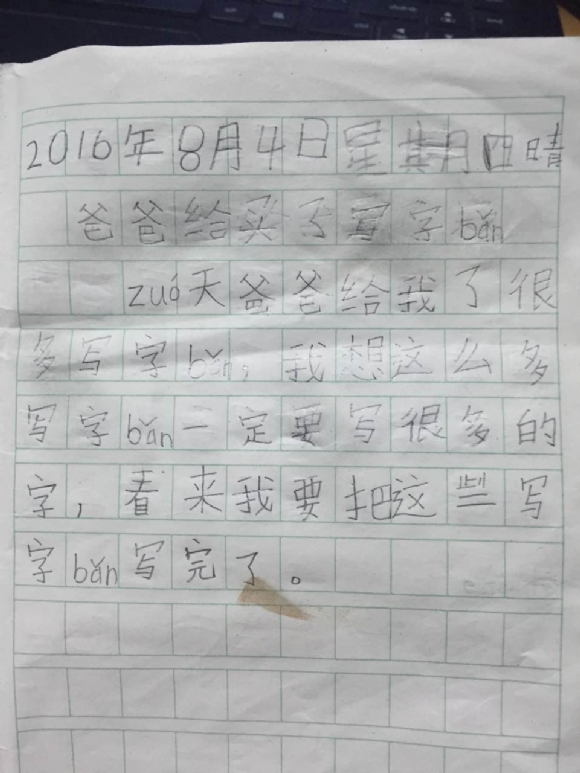 2016年8月4日星其月四晴
爸爸给买了写字bǎn
zuó天爸爸给我了很
多写字bǎn，我想这么多
写字bǎn一定要写很多的
字，看来我要把这些写
字bǎn写完了。